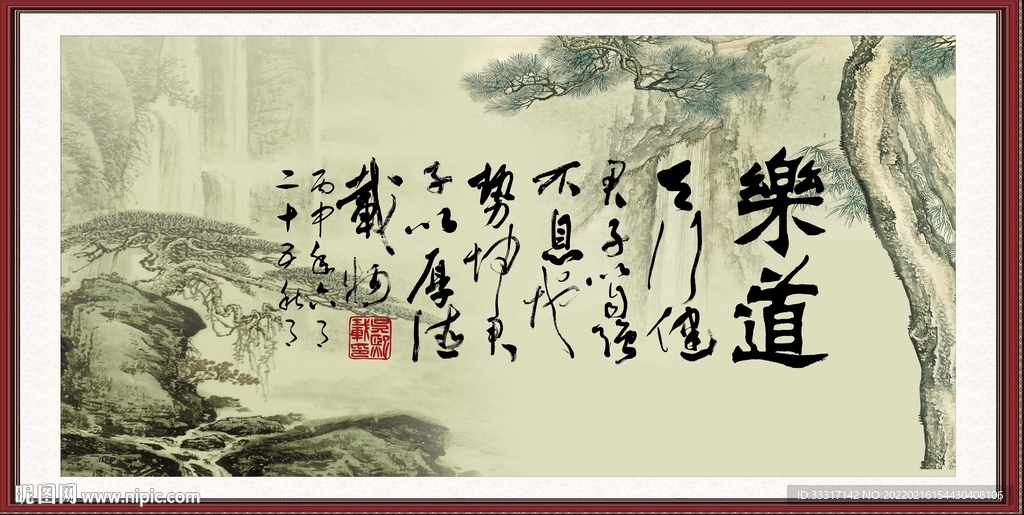 樂道
天行健
君子以自強
不息地
勢坤君
子以厚德
載物
丙申年六月
二十五
昵图网 www.nipic.com
ID:33317142 NO:20220216154430408106